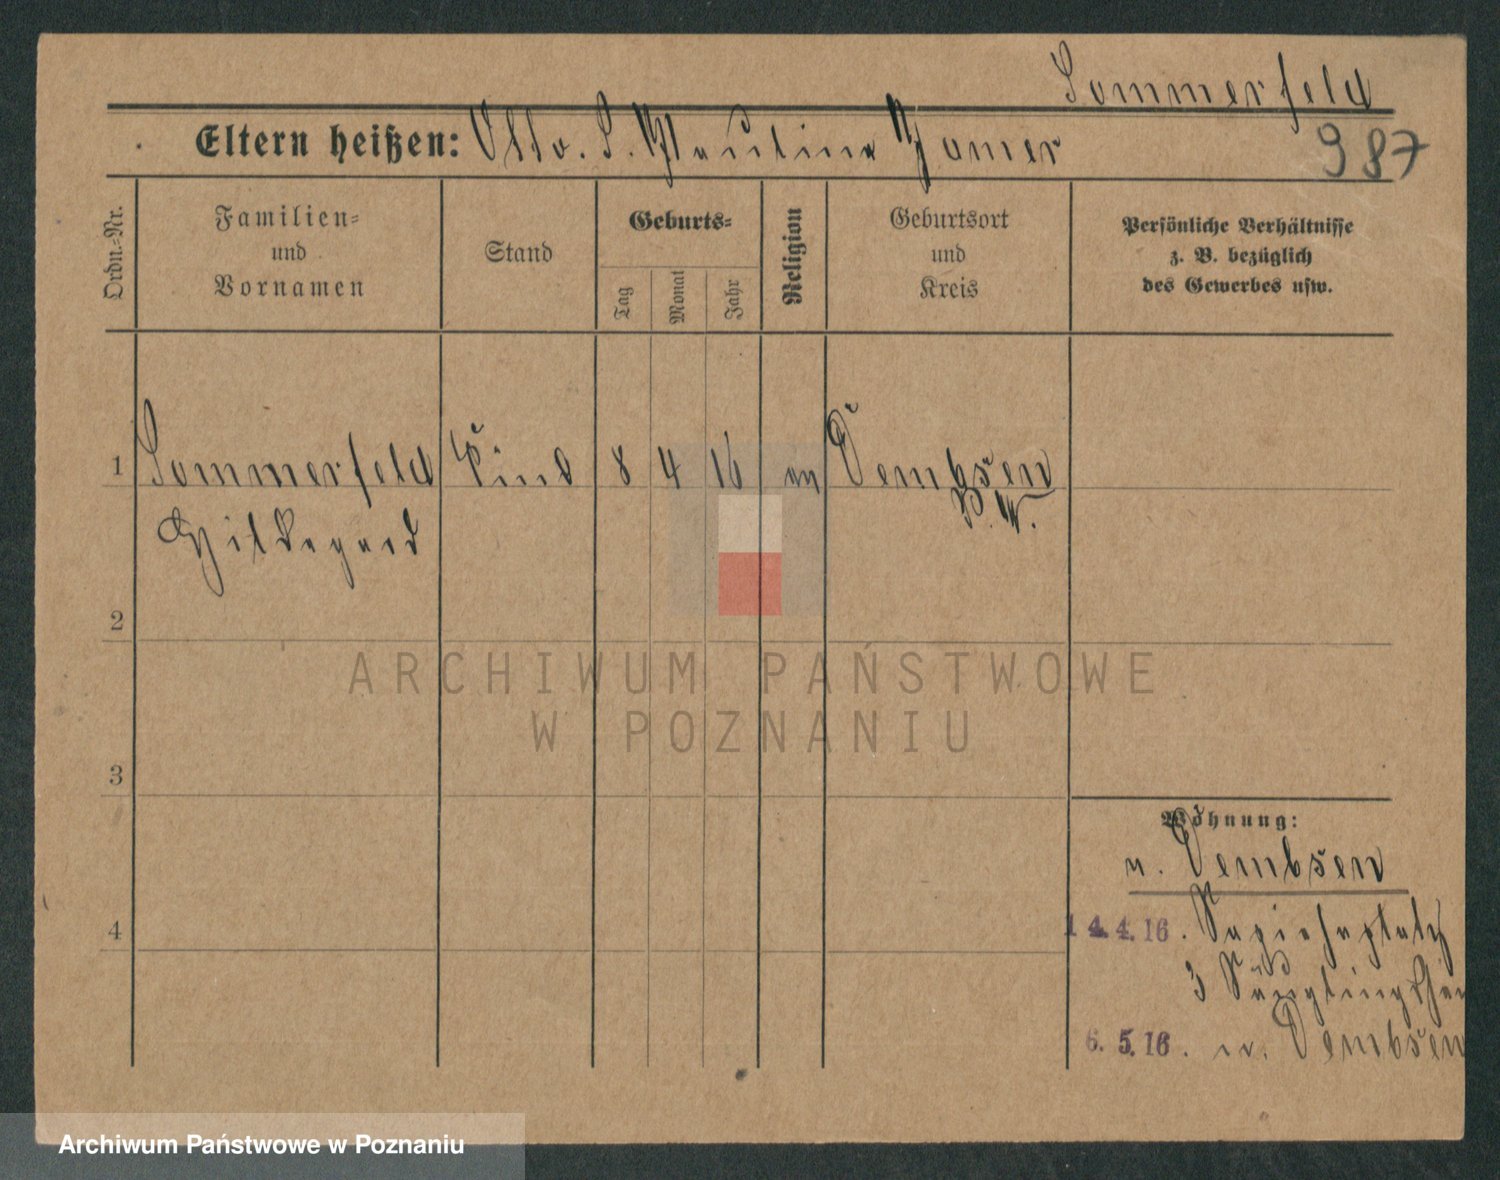 Sommerfeld
Eltern heißen: Otto. S. Pauline
987
Ordn.-Nr.
Familien-
und
Vornamen
Stand
Geburts-
Tag
Monat
Jahr
Religion
Geburtsort
und
Kreis
Persönliche Verhältnisse
z. B. bezüglich
des Gewerbes usw.
1 Sommerfeld Kind 8 4 16 ev Dembsen
P. W.
Hildegard
2
ARCHIWUM PAŃSTWOWE
W POZNANIU
3
4
Wohnung:
n. Dembsen
14.4.16.
3 Säuglingshei
6.5.16. n. Dembsen
Archiwum Państwowe w Poznaniu